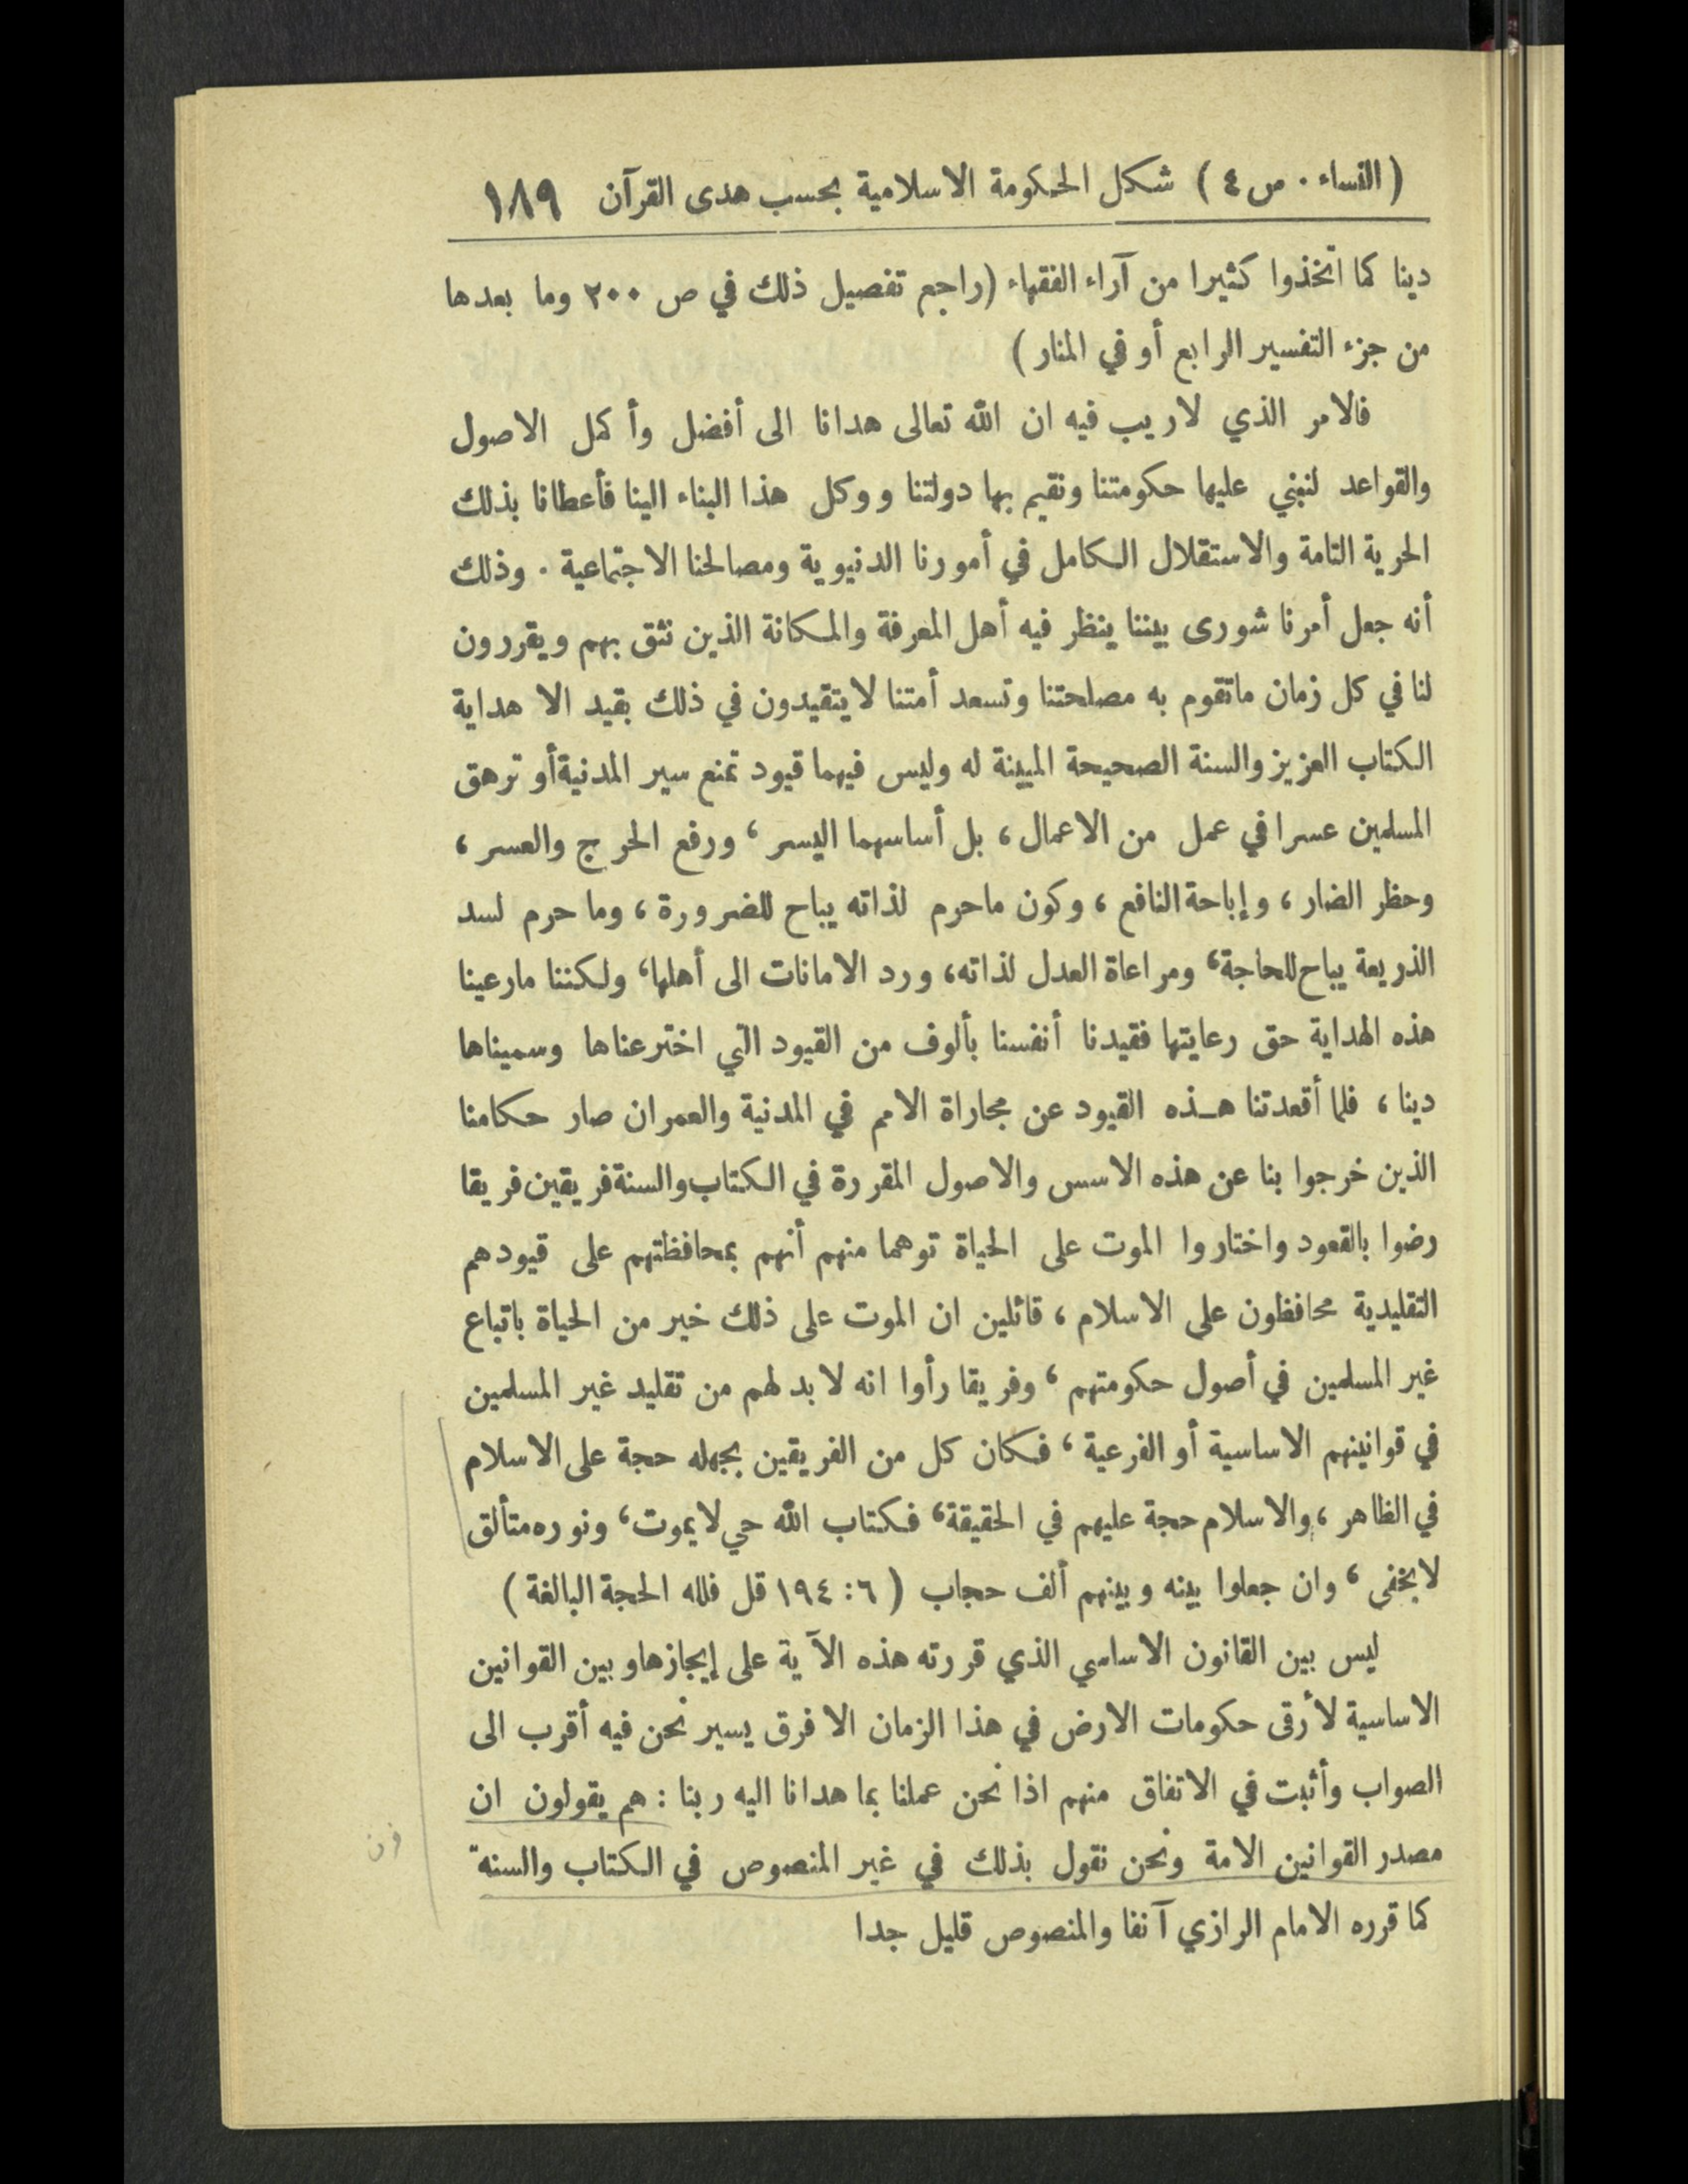 (النساء . س ٤) شكل الحكومة الاسلامية بحسب هدى القرآن ١٨٩
دينا كما اتخذوا كثيرا من آراء الفقهاء (راجع تفصيل ذلك في ص ٢٠٠ وما بعدها
من جزء التفسير الرابع أو في المنار)
فالامر الذي لاريب فيه ان الله تعالى هدانا الى أفضل وأكمل الاصول
والقواعد لنبني عليها حكومتنا ونقيم بها دولتنا ووكل هذا البناء الينا فأعطانا بذلك
الحرية التامة والاستقلال الكامل في أمورنا الدنيوية ومصالحنا الاجتماعية . وذلك
أنه جعل أمرنا شورى بيننا ينظر فيه أهل المعرفة والمكانة الذين نثق بهم ويقررون
لنا في كل زمان ماتقوم به مصلحتنا وتسعد أمتنا لايتقيدون في ذلك بقيد الا هداية
الكتاب العزيز والسنة الصحيحة المبينة له وليس فيهما قيود تمنع سير المدنية أو ترهق
المسلمين عسرا في عمل من الاعمال ، بل أساسهما اليسر ، ورفع الحرج والعسر ،
وحظر الضار ، وإباحة النافع ، وكون ماحرم لذاته يباح للضرورة ، وما حرم لسد
الذريعة يباح للحاجة ، ومراعاة العدل لذاته ، ورد الامانات الى أهلها ، ولكننا مارعينا
هذه الهداية حق رعايتها فقيدنا أنفسنا بألوف من القيود التي اخترعناها وسميناها
دينا ، فلما أقعدتنا هـذه القيود عن مجاراة الامم في المدنية والعمران صار حكامنا
الذين خرجوا بنا عن هذه الاسس والاصول المقررة في الكتاب والسنة فريقين فريقا
رضوا بالقعود واختاروا الموت على الحياة توهما منهم أنهم بمحافظتهم على قيودهم
التقليدية محافظون على الاسلام ، قائلين ان الموت على ذلك خير من الحياة باتباع
غير المسلمين في أصول حكومتهم ، وفريقا رأوا انه لا بد لهم من تقليد غير المسلمين
في قوانينهم الاساسية أو الفرعية ، فكان كل من الفريقين بجهله حجة على الاسلام
في الظاهر ، والاسلام حجة عليهم في الحقيقة ، فكتاب الله حي لايموت ، ونوره متألق
لايخفى ، وان جعلوا بينه وبينهم ألف حجاب (٦ : ١٩٤ قل فلله الحجة البالغة)
ليس بين القانون الاساسي الذي قررته هذه الآية على إيجازها وبين القوانين
الاساسية لأرقى حكومات الارض في هذا الزمان الا فرق يسير نحن فيه أقرب الى
الصواب وأثبت في الاتفاق منهم اذا نحن عملنا بما هدانا اليه ربنا : هم يقولون ان
مصدر القوانين الامة ونحن نقول بذلك في غير المنصوص في الكتاب والسنة
كما قرره الامام الرازي آنفا والمنصوص قليل جدا